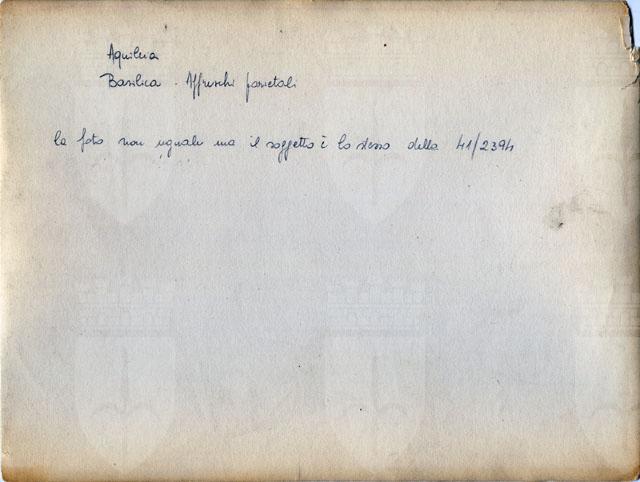 Aquileia
Basilica - Affreschi parietali
la foto non uguale ma il soggetto è lo stesso della 41/2394